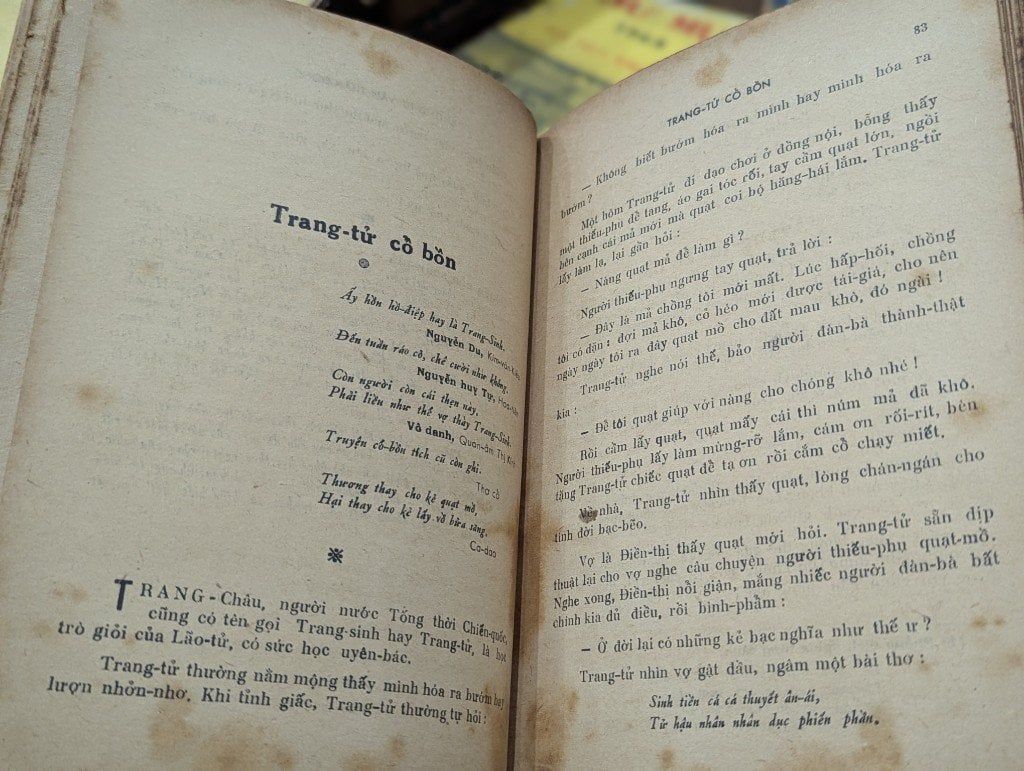 Trang-tử cổ bồn
Ấy hồn hồ-điệp hay là Trang-Sinh.
Nguyễn Du, Kim-vân-Kiều
Đến tuần ráo cỏ, chê cười như không.
Nguyễn huy Tự,
Còn người còn cái thẹn này,
Phải liều như thế vợ thầy Trang-Sinh.
Vô danh, Quan-âm Thị Kính
Truyện cổ-bồn tích cũ còn ghi.
Thơ cổ
Thương thay cho kẻ quạt mồ,
Hại thay cho kẻ lấy vồ bữa săng.
Ca-dao
TRANG-Châu, người nước Tống thời Chiến-quốc,
cũng có tên gọi Trang-sinh hay Trang-tử, là học
trò giỏi của Lão-tử, có sức học uyên-bác.
Trang-tử thường nằm mộng thấy mình hóa ra bướm bay
lượn nhởn-nhơ. Khi tỉnh giấc, Trang-tử thường tự hỏi :
83
TRANG-TỬ CỔ BỒN
— Không biết bướm hóa ra mình hay mình hóa ra
bướm ?
Một hôm Trang-tử đi dạo chơi ở đồng nội, bỗng thấy
một thiếu-phụ để tang, áo gai tóc rối, tay cầm quạt lớn, ngồi
bên cạnh cái mả mới mà quạt coi bộ hăng-hái lắm. Trang-tử
lấy làm lạ, lại gần hỏi :
— Nàng quạt mả để làm gì ?
Người thiếu-phụ ngưng tay quạt, trả lời :
— Đây là mả chồng tôi mới mất. Lúc hấp-hối, chồng
tôi có dặn : đợi mả khô, cỏ héo mới được tái-giá, cho nên
ngày ngày tôi ra đây quạt mồ cho đất mau khô, đó ngài !
Trang-tử nghe nói thế, bảo người đàn-bà thành-thật
kia :
— Để tôi quạt giúp với nàng cho chóng khô nhé !
Rồi cầm lấy quạt, quạt mấy cái thì núm mả đã khô.
Người thiếu-phụ lấy làm mừng-rỡ lắm, cám ơn rối-rít, bèn
tặng Trang-tử chiếc quạt để tạ ơn rồi cắm cổ chạy miết.
Về nhà, Trang-tử nhìn thấy quạt, lòng chán-ngán cho
tình đời bạc-bẽo.
Vợ là Điền-thị thấy quạt mới hỏi. Trang-tử sẵn dịp
thuật lại cho vợ nghe câu chuyện người thiếu-phụ quạt-mồ.
Nghe xong, Điền-thị nổi giận, mắng nhiếc người đàn-bà bất
chính kia đủ điều, rồi bình-phẩm :
— Ở đời lại có những kẻ bạc nghĩa như thế ư ?
Trang-tử nhìn vợ gật đầu, ngâm một bài thơ :
Sinh tiền cá cá thuyết ân-ái,
Tử hậu nhân nhân dục phiến phần.